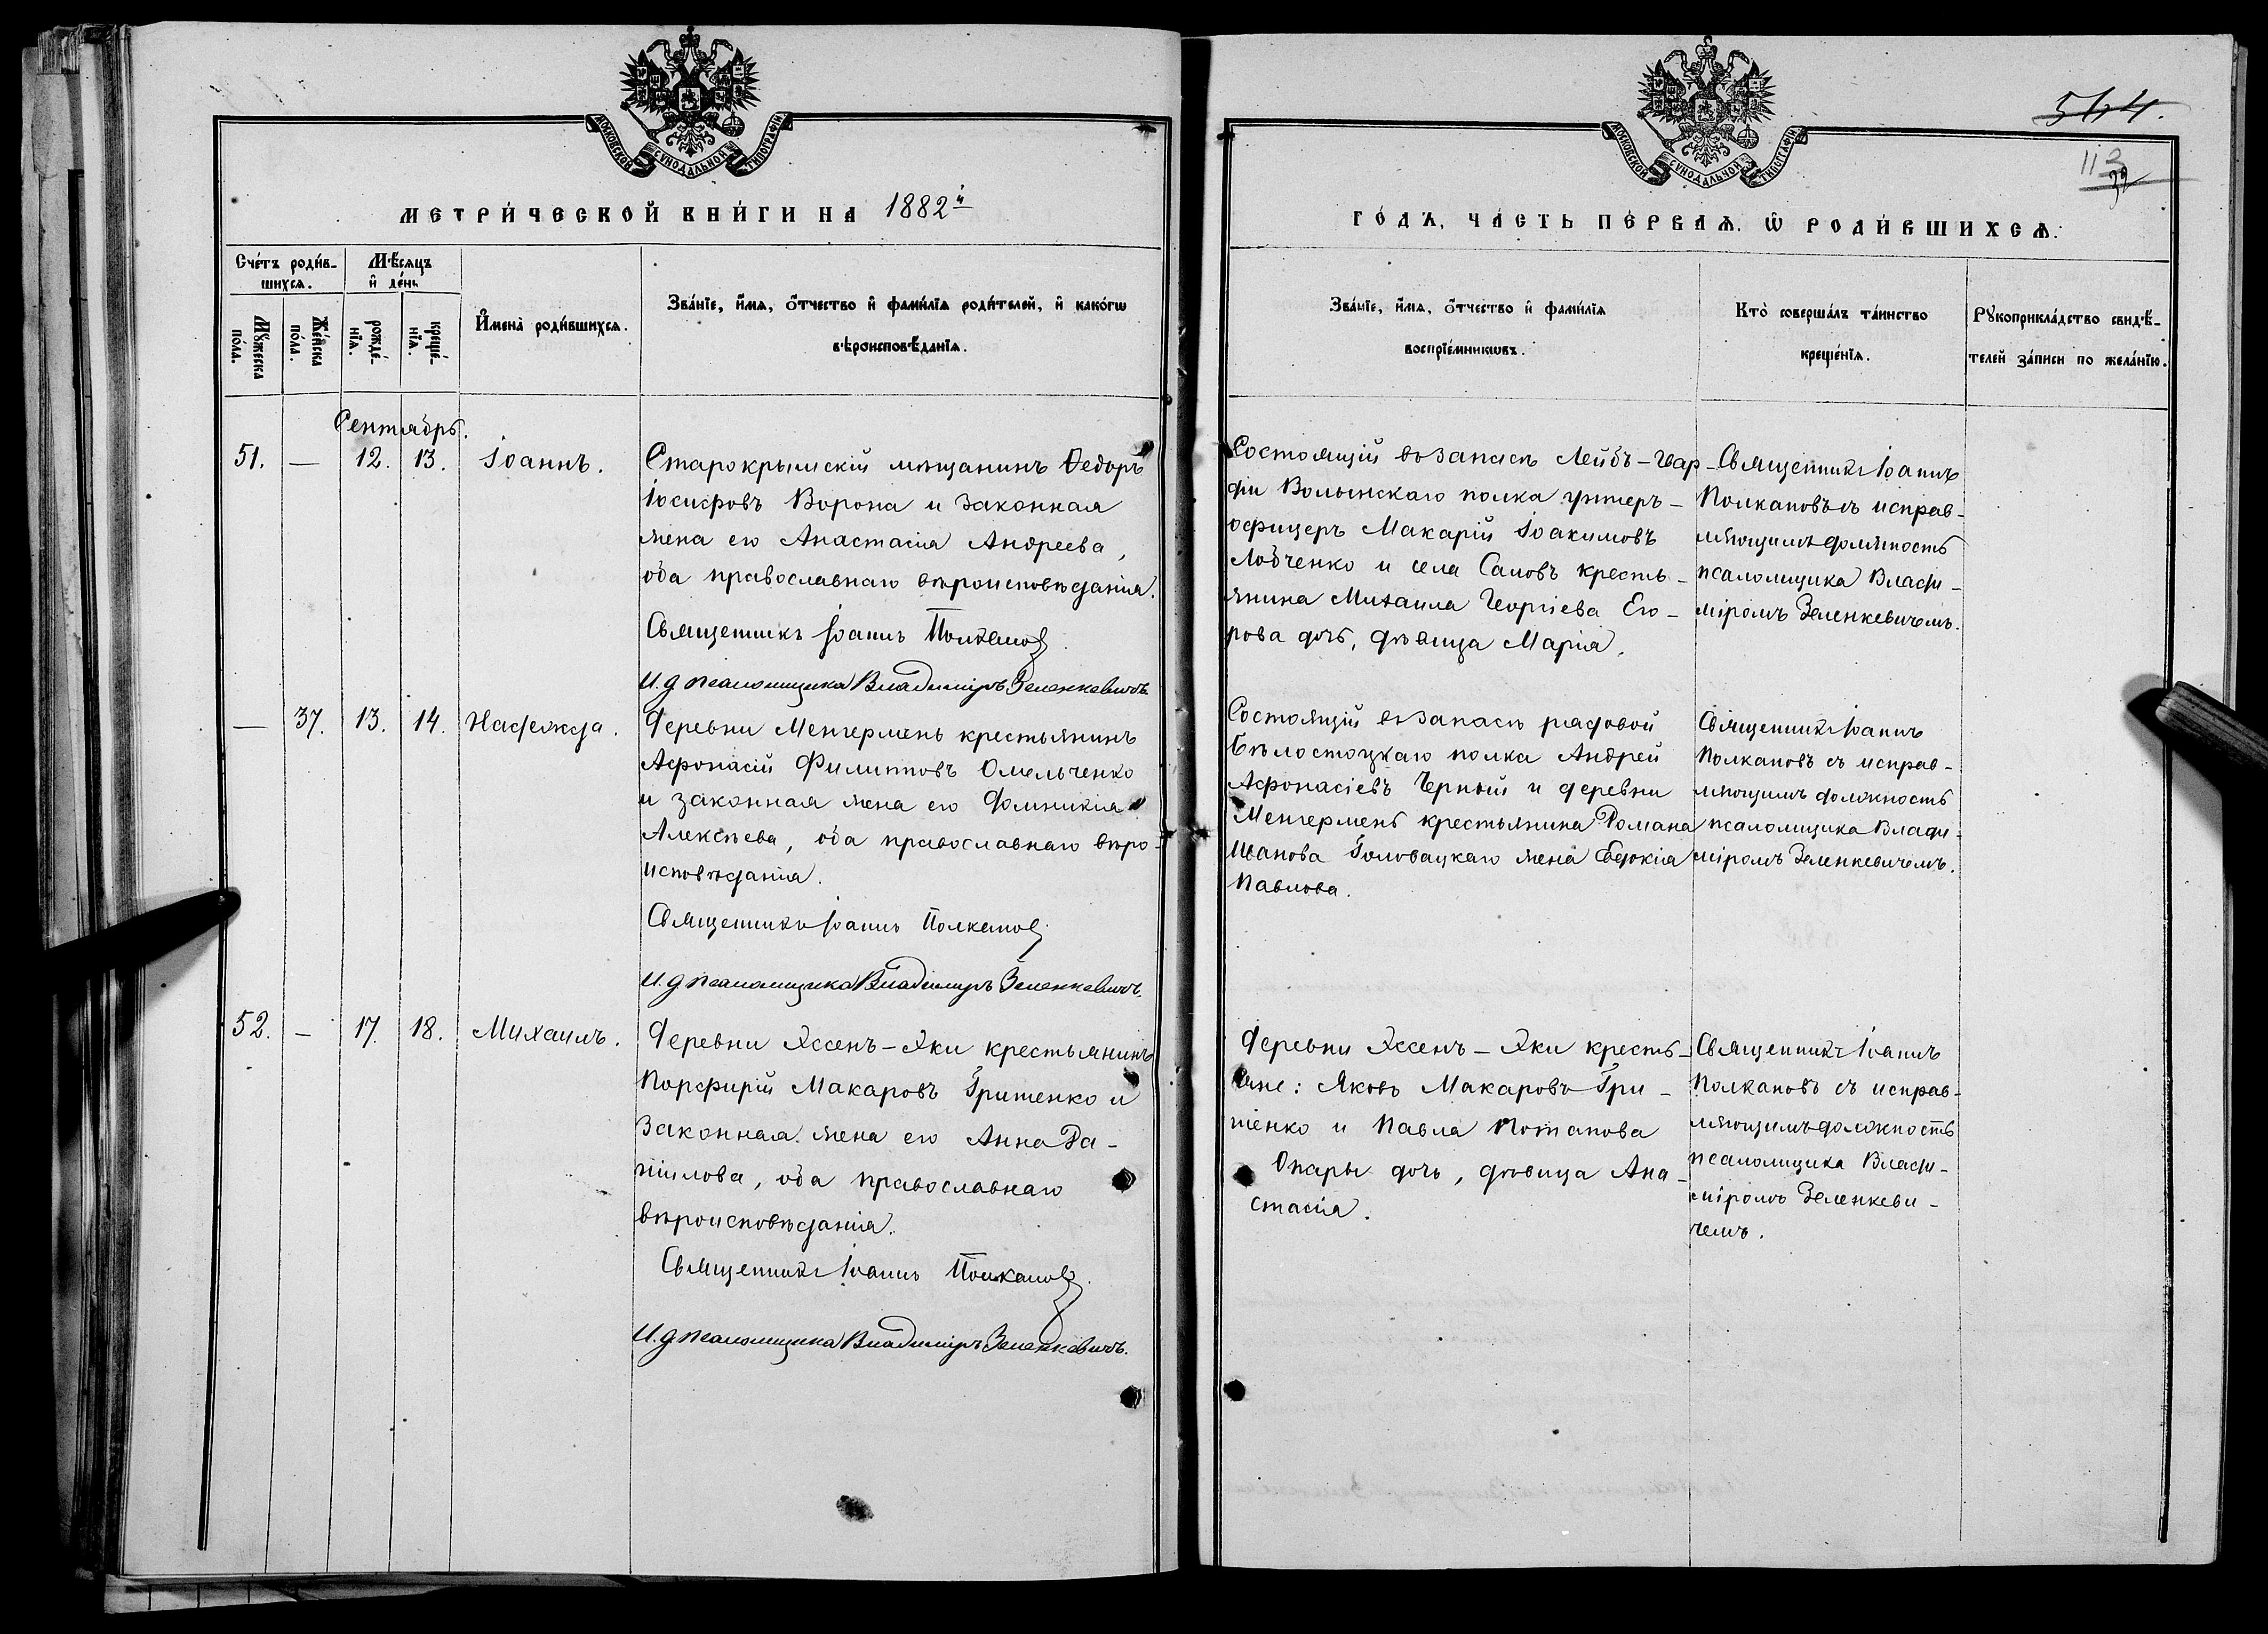 МОСКОВСКОЙ СѴНОДАЛЬНОЙ ТИПОГРАФІИ
МЕТРИ́ЧЕСКОЙ КНИ́ГИ НА 1882й
Сче́тъ роди́в-
шихся.
Мѣ́сяцъ
и҆ де́нь
Мꙋжеска
по́ла.
Же́нска
по́ла.
рожде́-
нїѧ.
креще́-
нїѧ.
И҆мена̀ роди́вшихсѧ.
Зва́нїе, и҆́мѧ, ѻ҆́тчество и҆ фами́лїѧ роди́телей, и҆ како́гѡ
вѣроисповѣ́данїѧ.
Сентябрь.
51.
—
12.
13.
Іоаннъ.
Старокрымскій мѣщанинъ Ѳедоръ
Іосифовъ Ворона и законная
жена его Анастасія Андреева,
оба православнаго вѣроисповѣданія.
Священникъ Іоаннъ Полкановъ
И. д. псаломщика Владиміръ Зеленкевичъ
—
37.
13.
14.
Надежда.
Деревни Менгерменъ крестьянинъ
Афонасій Филипповъ Омельченко
и законная жена его Домникія
Алексѣева, оба православнаго вѣро-
исповѣданія.
Священникъ Іоаннъ Полкановъ
И. д. псаломщика Владиміръ Зеленкевичъ.
52.
—
17.
18.
Михаилъ.
Деревни Яссенъ-Яки крестьянинъ
Порфирій Макаровъ Гриненко и
законная жена его Анна Да-
нилова, оба православнаго
вѣроисповѣданія.
Священникъ Іоаннъ Полкановъ.
И. д. псаломщика Владиміръ Зеленкевичъ.
564.
МОСКОВСКОЙ СѴНОДАЛЬНОЙ ТИПОГРАФІИ
113
32
ГО́ДЪ, ЧА́СТЬ ПЕ́РВАѦ. Ѡ҆ РОДИ́ВШИХСѦ.
Зва́нїе, и҆́мѧ, ѻ҆́тчество и҆ фами́лїѧ
воспрїе́мникѡвъ.
Кто̀ соверша́лъ та́инство
креще́нїѧ.
Рꙋкоприкла́дство свидѣ́-
телей за́писи по жела́нїю.
Состоящій въ запасѣ Лейбъ-Гвар-
діи Волынскаго полка унтеръ-
офицеръ Макарій Іоакимовъ
Лобченко и села Саловъ кресть-
янина Михаила Георгіева Его-
рова дочь, дѣвица Марія.
Священникъ Іоаннъ
Полкановъ съ исправ-
ляющимъ должность
псаломщика Влади-
міромъ Зеленкевичемъ.
Состоящій въ запасѣ рядовой
Бѣлостоцкаго полка Андрей
Афонасіевъ Черный и деревни
Менгерменъ крестьянина Романа
Иванова Головацкаго жена Евдокія
Павлова.
Священникъ Іоаннъ
Полкановъ съ исправ-
ляющимъ должность
псаломщика Влади-
міромъ Зеленкевичемъ.
Деревни Яссенъ-Яки кресть-
яне: Яковъ Макаровъ Гри-
ненко и Павла Потапова
Опары дочь, дѣвица Ана-
стасія.
Священникъ Іоаннъ
Полкановъ съ исправ-
ляющимъ должность
псаломщика Влади-
міромъ Зеленкеви-
чемъ.